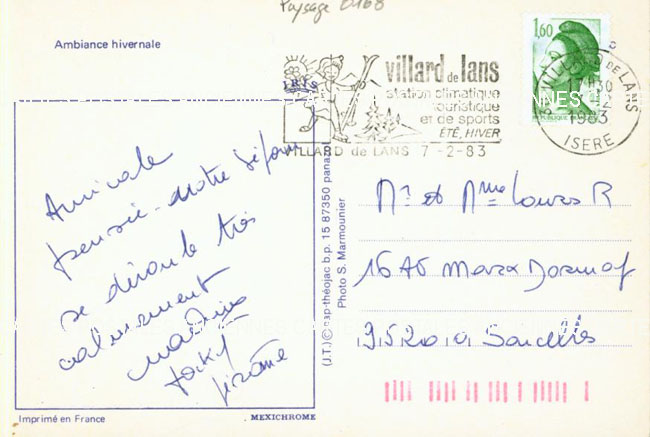 Paysage 0168
Ambiance hivernale
villard de lans
station climatique
touristique
et de sports
ÉTÉ, HIVER
VILLARD de LANS 7-2-83
1,60
REPUBLIQUE
VILLARD DE LANS
1983
ISERE
Amicale
pensée. notre séjour
se déroule très
calmement
Jacky
Jérôme
(J.T.) © cap-théojac b.p. 15 87350 panazol
Photo S. Marmounier
Mr et Mme Louis R
16 Av Marx Dormoy
95200 Sarcelles
Imprimé en France
MEXICHROME